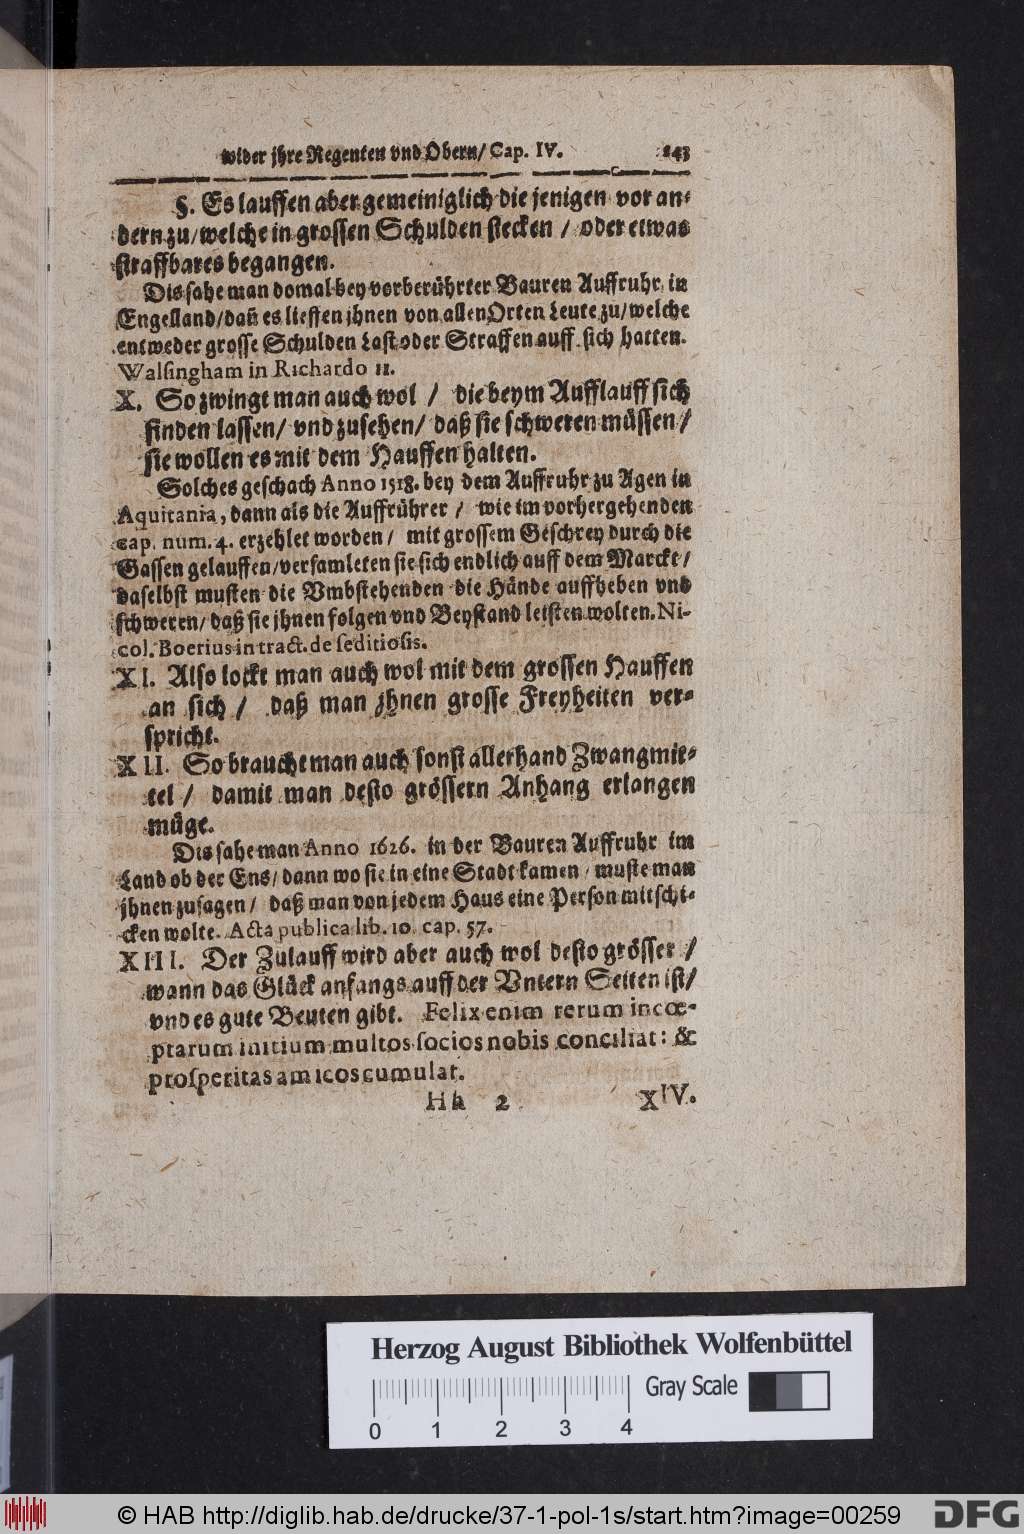 wider jhre Regenten vnd Obern/ Cap. IV. 243
§. Es lauffen aber gemeiniglich die jenigen vor an-
dern zu/ welche in grossen Schulden stecken / oder etwas
straffbares begangen.
Dis sahe man domal bey vorberührter Bauren Auffruhr in
Engelland/ dañ es lieffen jhnen von allen Orten Leute zu/ welche
entweder grosse Schulden Last oder Straffen auff sich hatten.
Walsingham in Richardo II.
X. So zwingt man auch wol / die beym Aufflauff sich
finden lassen/ vnd zusehen/ daß sie schweren müssen/
sie wollen es mit dem Hauffen halten.
Solches geschach Anno 1518. bey dem Auffruhr zu Agen in
Aquitania, dann als die Auffrührer / wie im vorhergehenden
cap. num. 4. erzehlet worden/ mit grossem Geschrey durch die
Gassen gelauffen/ versamleten sie sich endlich auff dem Marckt/
daselbst musten die Vmbstehenden die Hände auffheben vnd
schweren/ daß sie jhnen folgen vnd Beystand leisten wolten. Ni-
col. Boerius in tract. de seditiosis.
XI. Also lockt man auch wol mit dem grossen Hauffen
an sich / daß man jhnen grosse Freyheiten ver-
spricht.
XII. So braucht man auch sonst allerhand Zwangmit-
tel / damit man desto grössern Anhang erlangen
müge.
Dis sahe man Anno 1626. in der Bauren Auffruhr im
Land ob der Ens/ dann wo sie in eine Stadt kamen / muste man
jhnen zusagen/ daß man von jedem Haus eine Person mitschi-
cken wolte. Acta publica lib. 10. cap. 57.
XIII. Der Zulauff wird aber auch wol desto grösser /
wann das Glück anfangs auff der Vntern Seiten ist/
vnd es gute Beuten gibt. Felix enim rerum incœ-
ptarum initium multos socios nobis conciliat: &
prosperitas amicos cumulat.
Hh 2 XIV.
Herzog August Bibliothek Wolfenbüttel
Gray Scale
0 1 2 3 4
© HAB http://diglib.hab.de/drucke/37-1-pol-1s/start.htm?image=00259
DFG